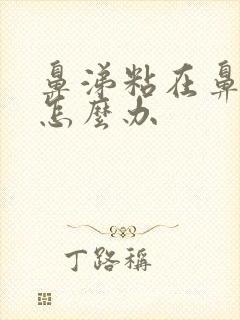 鼻涕粘在鼻
怎麼办
丁路稱